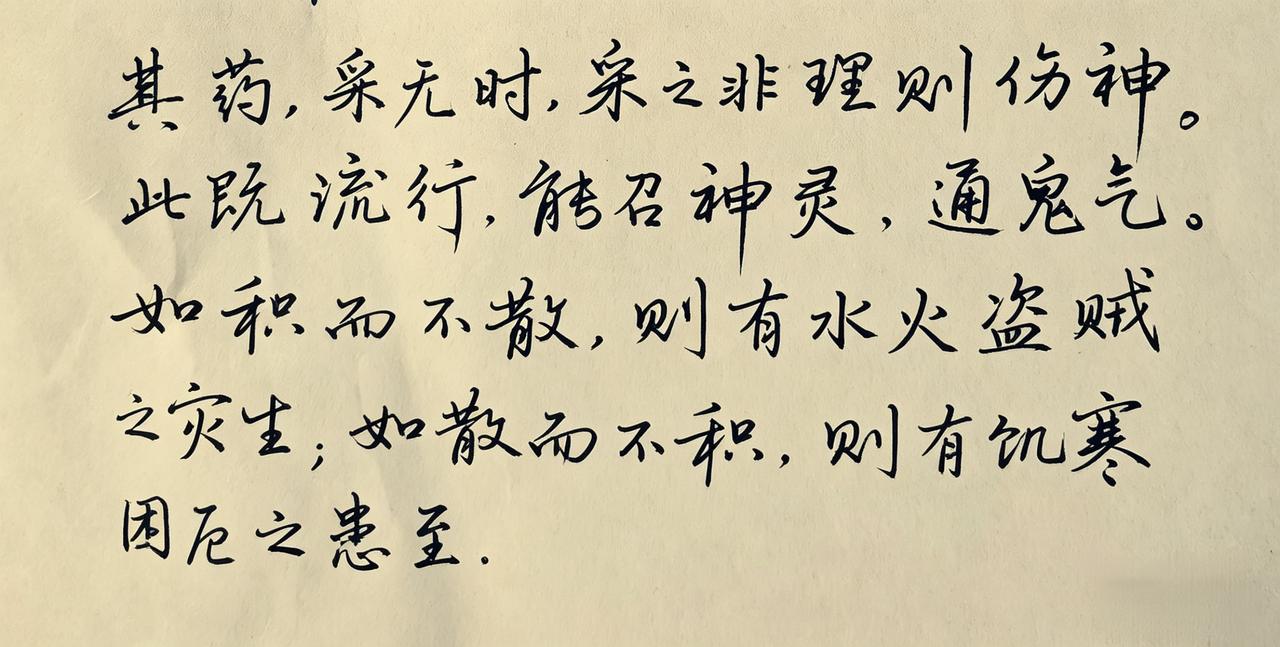 其药,采无时,采之非理则伤神。
此既流行,能召神灵,通鬼气。
如积而不散,则有水火盗贼
之灾生;如散而不积,则有饥寒
困厄之患至.